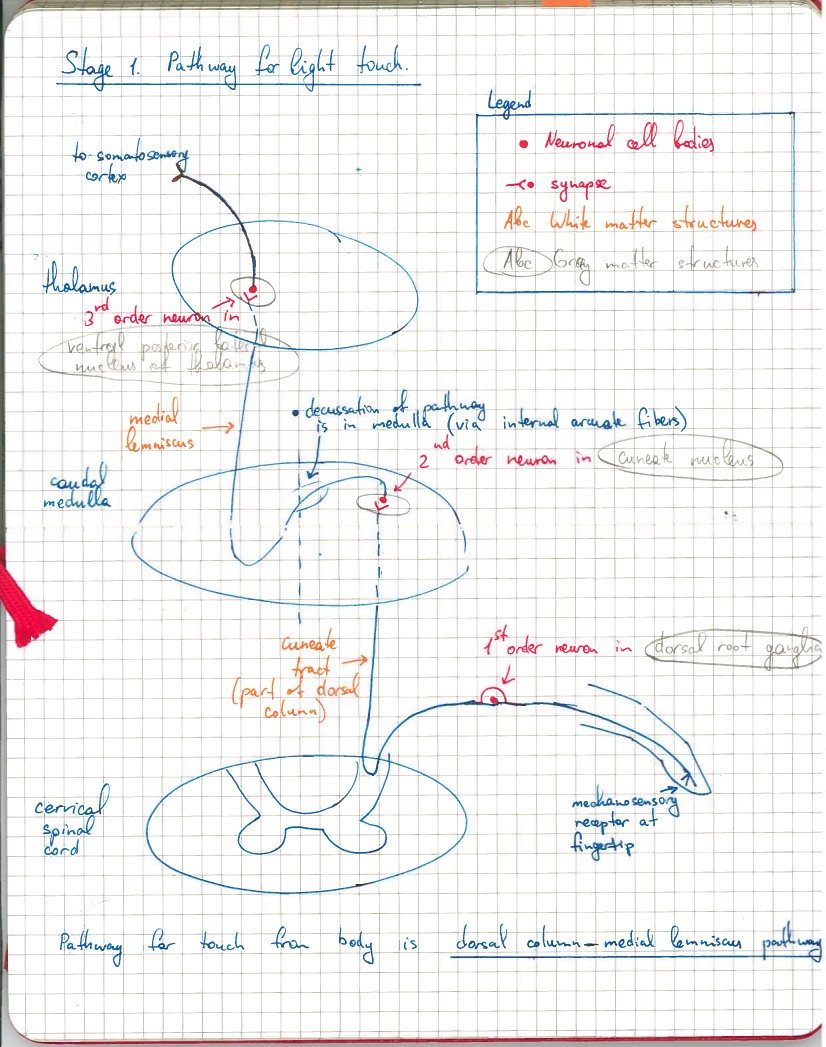 Stage 1. Pathway for light touch.
Legend
• Neuronal cell bodies
synapse
Abc White matter structures
Abc Gray matter structures
to somatosensory
cortex
thalamus
3rd order neuron in
ventral posterior lateral
nucleus of thalamus
medial
lemniscus
• decussation of pathway
is in medulla (via internal arcuate fibers)
2nd order neuron in cuneate nucleus
caudal
medulla
cuneate
tract
(part of dorsal
column)
1st order neuron in dorsal root ganglia
mechanosensory
receptor at
fingertip
cervical
spinal
cord
Pathway for touch from body is dorsal column-medial lemniscus pathway